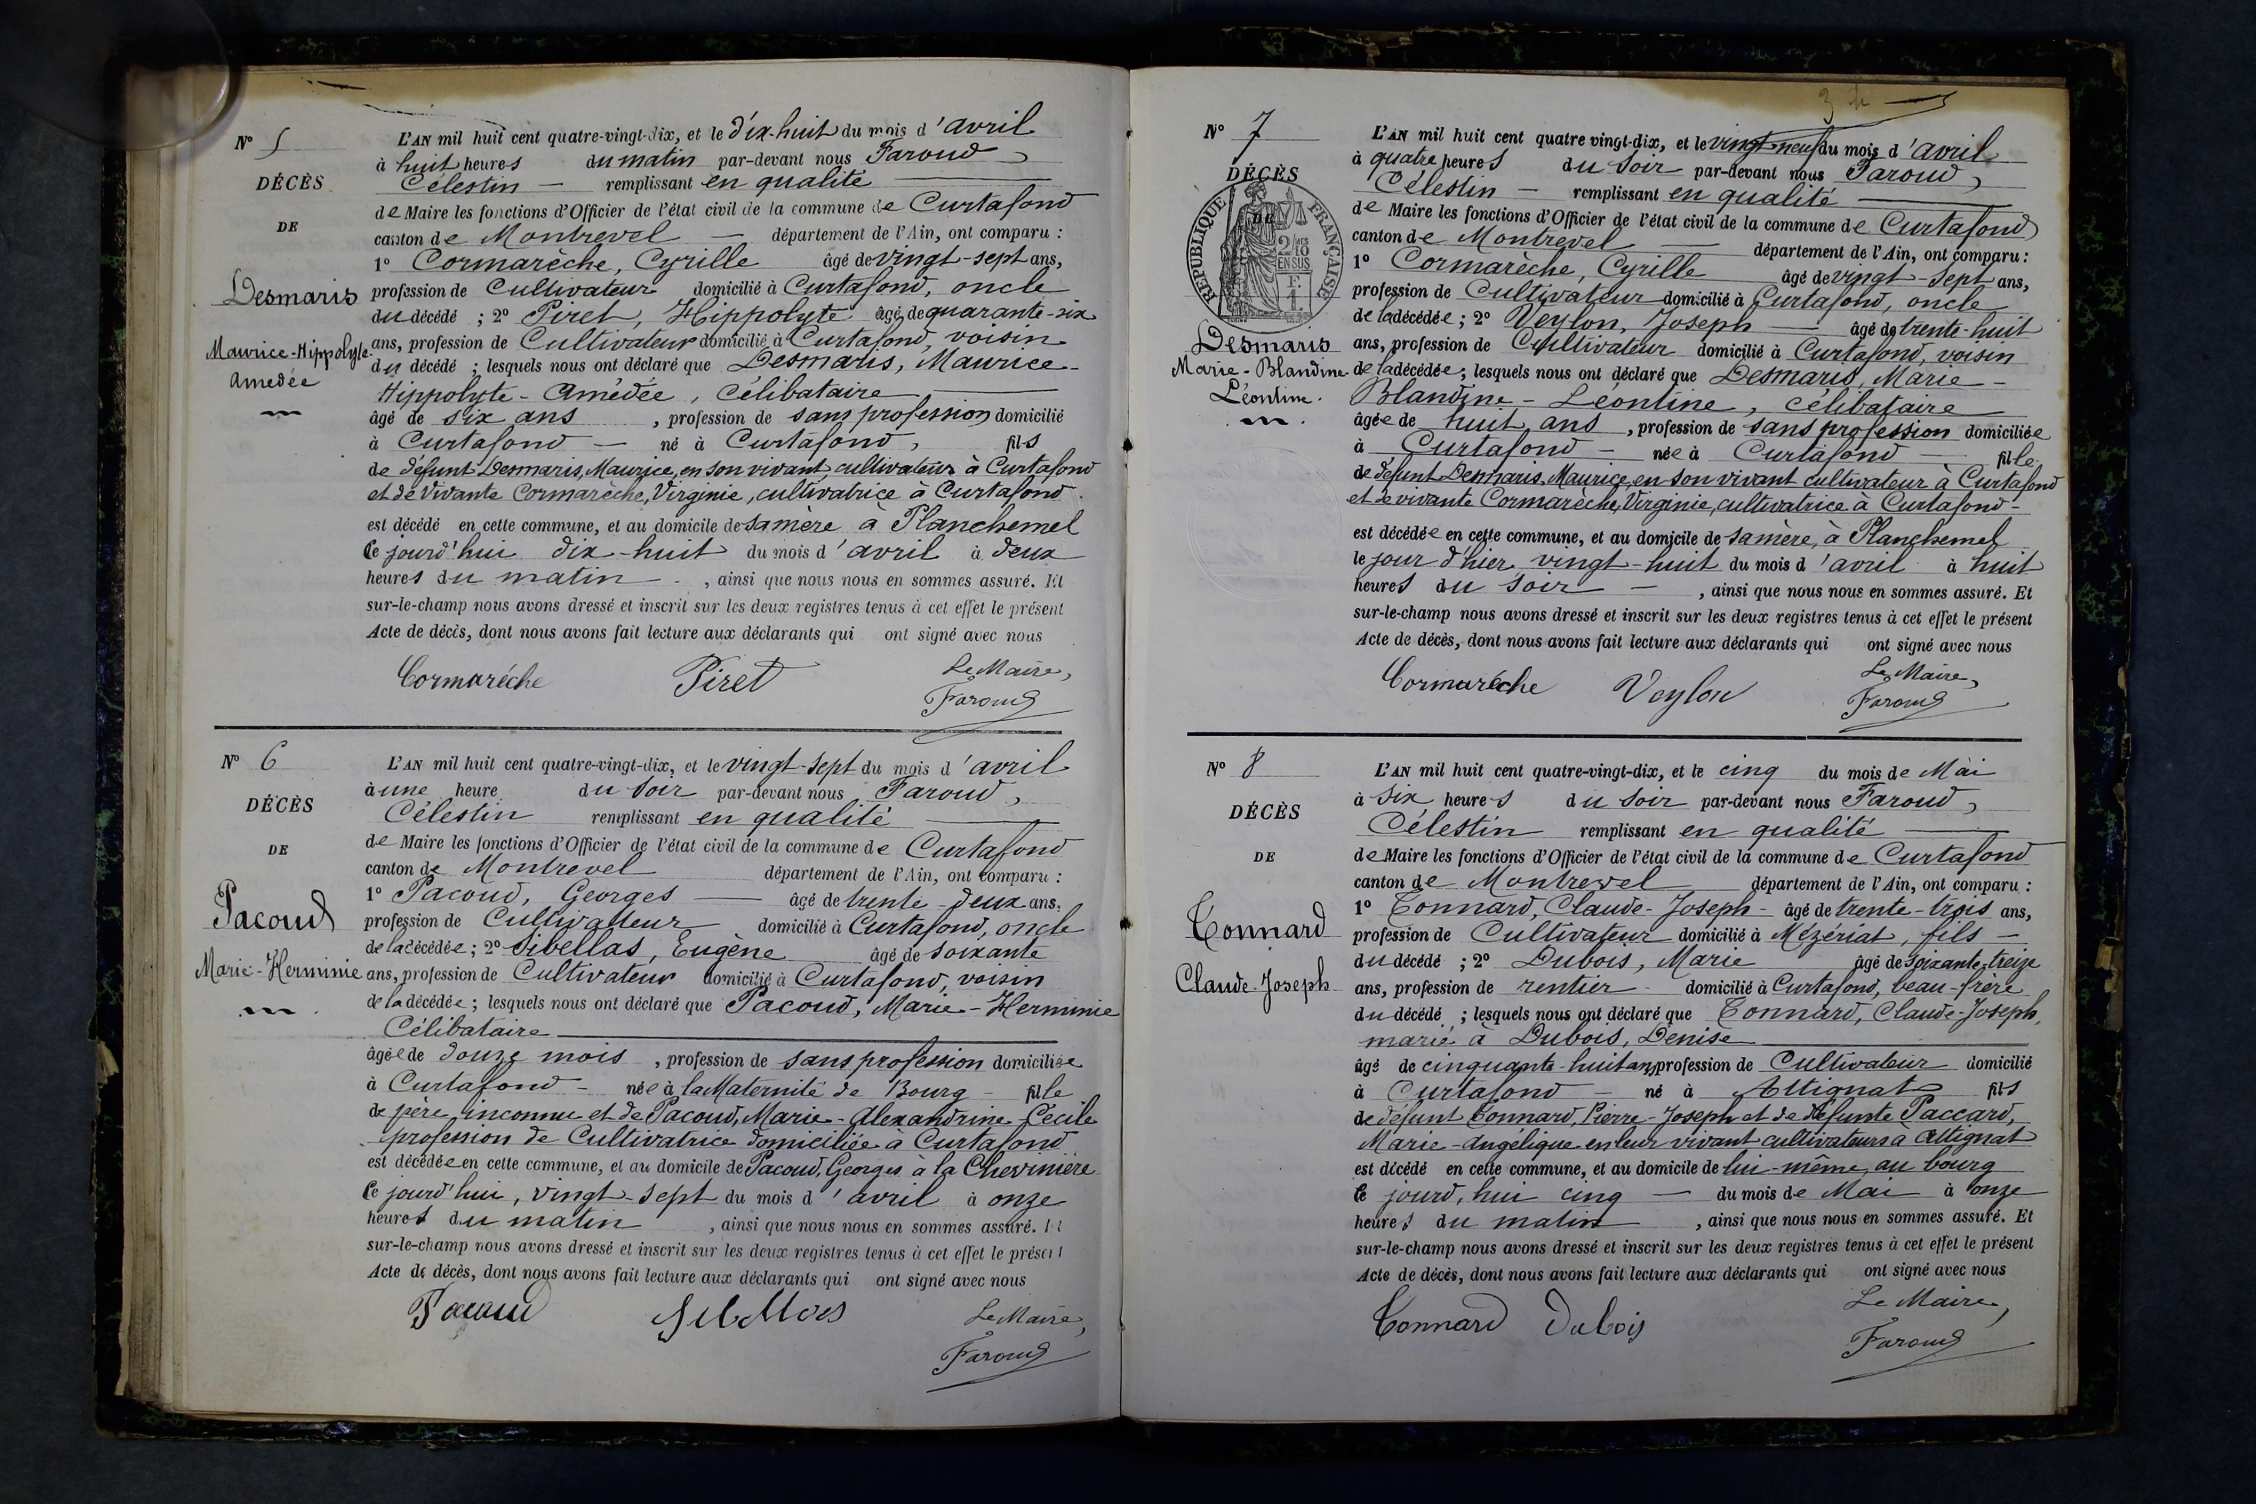 Nº 5
DÉCÈS
DE
Desmaris
Maurice-Hippolyte-
Amedée
L'AN mil huit cent quatre-vingt-dix, et le dix-huit du mois d'avril
à huit heures du matin par-devant nous Faroud,
Célestin — remplissant en qualité
de Maire les fonctions d'Officier de l'état civil de la commune de Curtafond
canton de Montrevel — département de l'Ain, ont comparu :
1º Cormarèche, Cyrille âgé de vingt-sept ans,
profession de Cultivateur domicilié à Curtafond, oncle
du décédé ; 2º Piret, Hippolyte âgé de quarante-six
ans, profession de Cultivateur domicilié à Curtafond, voisin
du décédé ; lesquels nous ont déclaré que Desmaris, Maurice-
Hippolyte-Amédée, célibataire
âgé de six ans , profession de sans profession domicilié
à Curtafond — né à Curtafond, fils
de défunt Desmaris, Maurice, en son vivant cultivateur à Curtafond
et de vivante Cormarèche, Virginie, cultivatrice à Curtafond.
est décédé en cette commune, et au domicile de sa mère à Planchemel
le jourd'hui dix-huit du mois d'avril à deux
heures du matin — , ainsi que nous nous en sommes assuré. Et
sur-le-champ nous avons dressé et inscrit sur les deux registres tenus à cet effet le présent
Acte de décès, dont nous avons fait lecture aux déclarants qui ont signé avec nous
Cormaréche Piret Le Maire,
Faroud
Nº 6
DÉCÈS
DE
Pacoud
Marie-Herminie
L'AN mil huit cent quatre-vingt-dix, et le vingt-sept du mois d'avril
à une heure du soir par-devant nous Faroud,
Célestin remplissant en qualité
de Maire les fonctions d'Officier de l'état civil de la commune de Curtafond
canton de Montrevel département de l'Ain, ont comparu :
1º Pacoud, Georges — âgé de trente-deux ans,
profession de Cultivateur domicilié à Curtafond, oncle
de la décédée ; 2º Sibellas, Eugène âgé de soixante
ans, profession de Cultivateur domicilié à Curtafond, voisin
de la décédée ; lesquels nous ont déclaré que Pacoud, Marie-Herminie
Célibataire
âgée de douze mois , profession de sans profession domiciliée
à Curtafond — née à la Maternité de Bourg — fille
de père inconnu et de Pacoud, Marie-Alexandrine-Cécile
profession de Cultivatrice domiciliée à Curtafond
est décédée en cette commune, et au domicile de Pacoud, Georges à la Chevinière
le jourd'hui, vingt-sept du mois d'avril à onze
heures du matin , ainsi que nous nous en sommes assuré. Et
sur-le-champ nous avons dressé et inscrit sur les deux registres tenus à cet effet le présent
Acte de décès, dont nous avons fait lecture aux déclarants qui ont signé avec nous
Pacoud Le Maire,
Faroud
Nº 7
DÉCÈS
DE
RÉPUBLIQUE FRANÇAISE
2/10 EN SUS
Desmaris
Marie-Blandine
Léontine.
L'AN mil huit cent quatre vingt-dix, et le vingt-neuf du mois d'avril
à quatre heures du soir par-devant nous Faroud,
Célestin — remplissant en qualité
de Maire les fonctions d'Officier de l'état civil de la commune de Curtafond
canton de Montrevel — département de l'Ain, ont comparu :
1º Cormarèche, Cyrille âgé de vingt-sept ans,
profession de Cultivateur domicilié à Curtafond, oncle
de la décédée ; 2º Veylon, Joseph — âgé de trente-huit
ans, profession de Cultivateur domicilié à Curtafond, voisin
de la décédée ; lesquels nous ont déclaré que Desmaris, Marie-
Blandine-Léontine, célibataire
âgée de huit ans , profession de sans profession domiciliée
à Curtafond — née à Curtafond — fille
de défunt Desmaris, Maurice, en son vivant cultivateur à Curtafond
et de vivante Cormarèche, Virginie, cultivatrice à Curtafond —
est décédée en cette commune, et au domicile de sa mère, à Planchemel
le jour d'hier vingt-huit du mois d'avril à huit
heures du soir — , ainsi que nous nous en sommes assuré. Et
sur-le-champ nous avons dressé et inscrit sur les deux registres tenus à cet effet le présent
Acte de décès, dont nous avons fait lecture aux déclarants qui ont signé avec nous
Cormaréche Veylon Le Maire,
Faroud
Nº 8
DÉCÈS
DE
Connard
Claude-Joseph
L'AN mil huit cent quatre-vingt-dix, et le cinq du mois de Mai
à six heures du soir par-devant nous Faroud,
Célestin remplissant en qualité
de Maire les fonctions d'Officier de l'état civil de la commune de Curtafond
canton de Montrevel — département de l'Ain, ont comparu :
1º Connard, Claude-Joseph — âgé de trente-trois ans,
profession de Cultivateur domicilié à Mézériat, fils —
du décédé ; 2º Dubois, Marie âgé de soixante-treize
ans, profession de rentier domicilié à Curtafond, beau-frère
du décédé ; lesquels nous ont déclaré que Connard, Claude-Joseph,
marié à Dubois, Denise
âgé de cinquante-huit ans, profession de Cultivateur domicilié
à Curtafond — né à Attignat fils
de défunt Connard, Pierre-Joseph et de défunte Paccard,
Marie-Angélique en leur vivant cultivateurs à Attignat
est décédé en cette commune, et au domicile de lui-même, au bourg
le jourd'hui cinq — du mois de Mai à onze
heures du matin , ainsi que nous nous en sommes assuré. Et
sur-le-champ nous avons dressé et inscrit sur les deux registres tenus à cet effet le présent
Acte de décès, dont nous avons fait lecture aux déclarants qui ont signé avec nous
Connard Dubois Le Maire,
Faroud